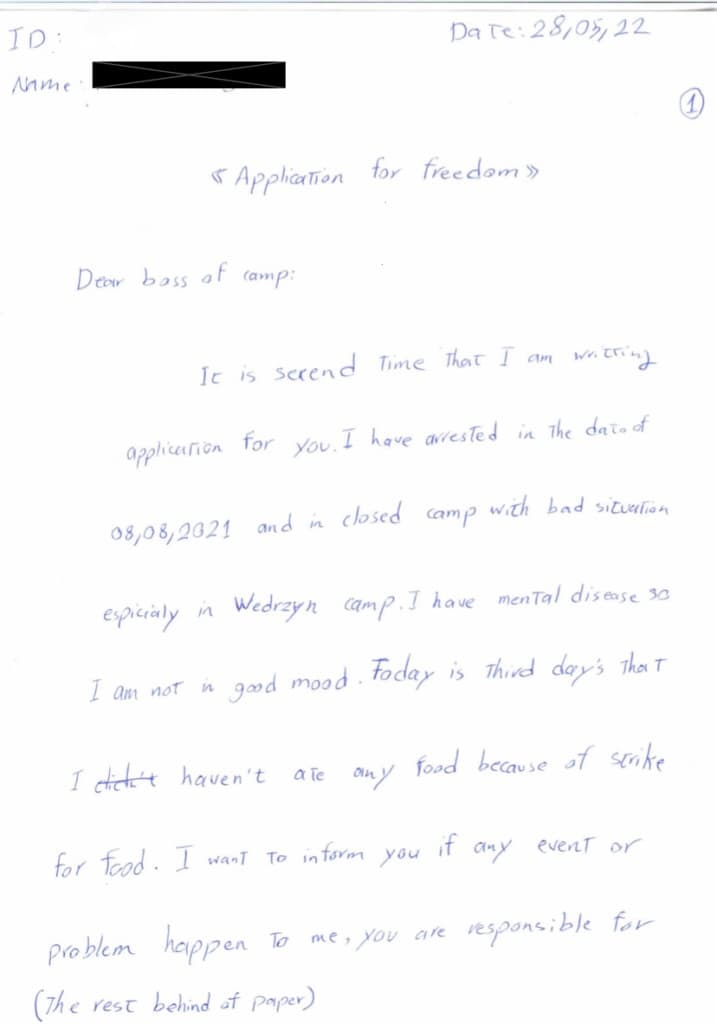 ID:
Date: 28,05,22
Name:
1
« Application for freedom »
Dear boss of camp:
It is secend time that I am writting
application for you. I have arrested in the date of
08,08,2021 and in closed camp with bad situation
espicialy in Wedrzyn camp. I have mental disease so
I am not in good mood. Today is third day's that
I didn't haven't ate any food because of strike
for food. I want to inform you if any event or
problem happen to me, you are responsible for
(The rest behind of paper)